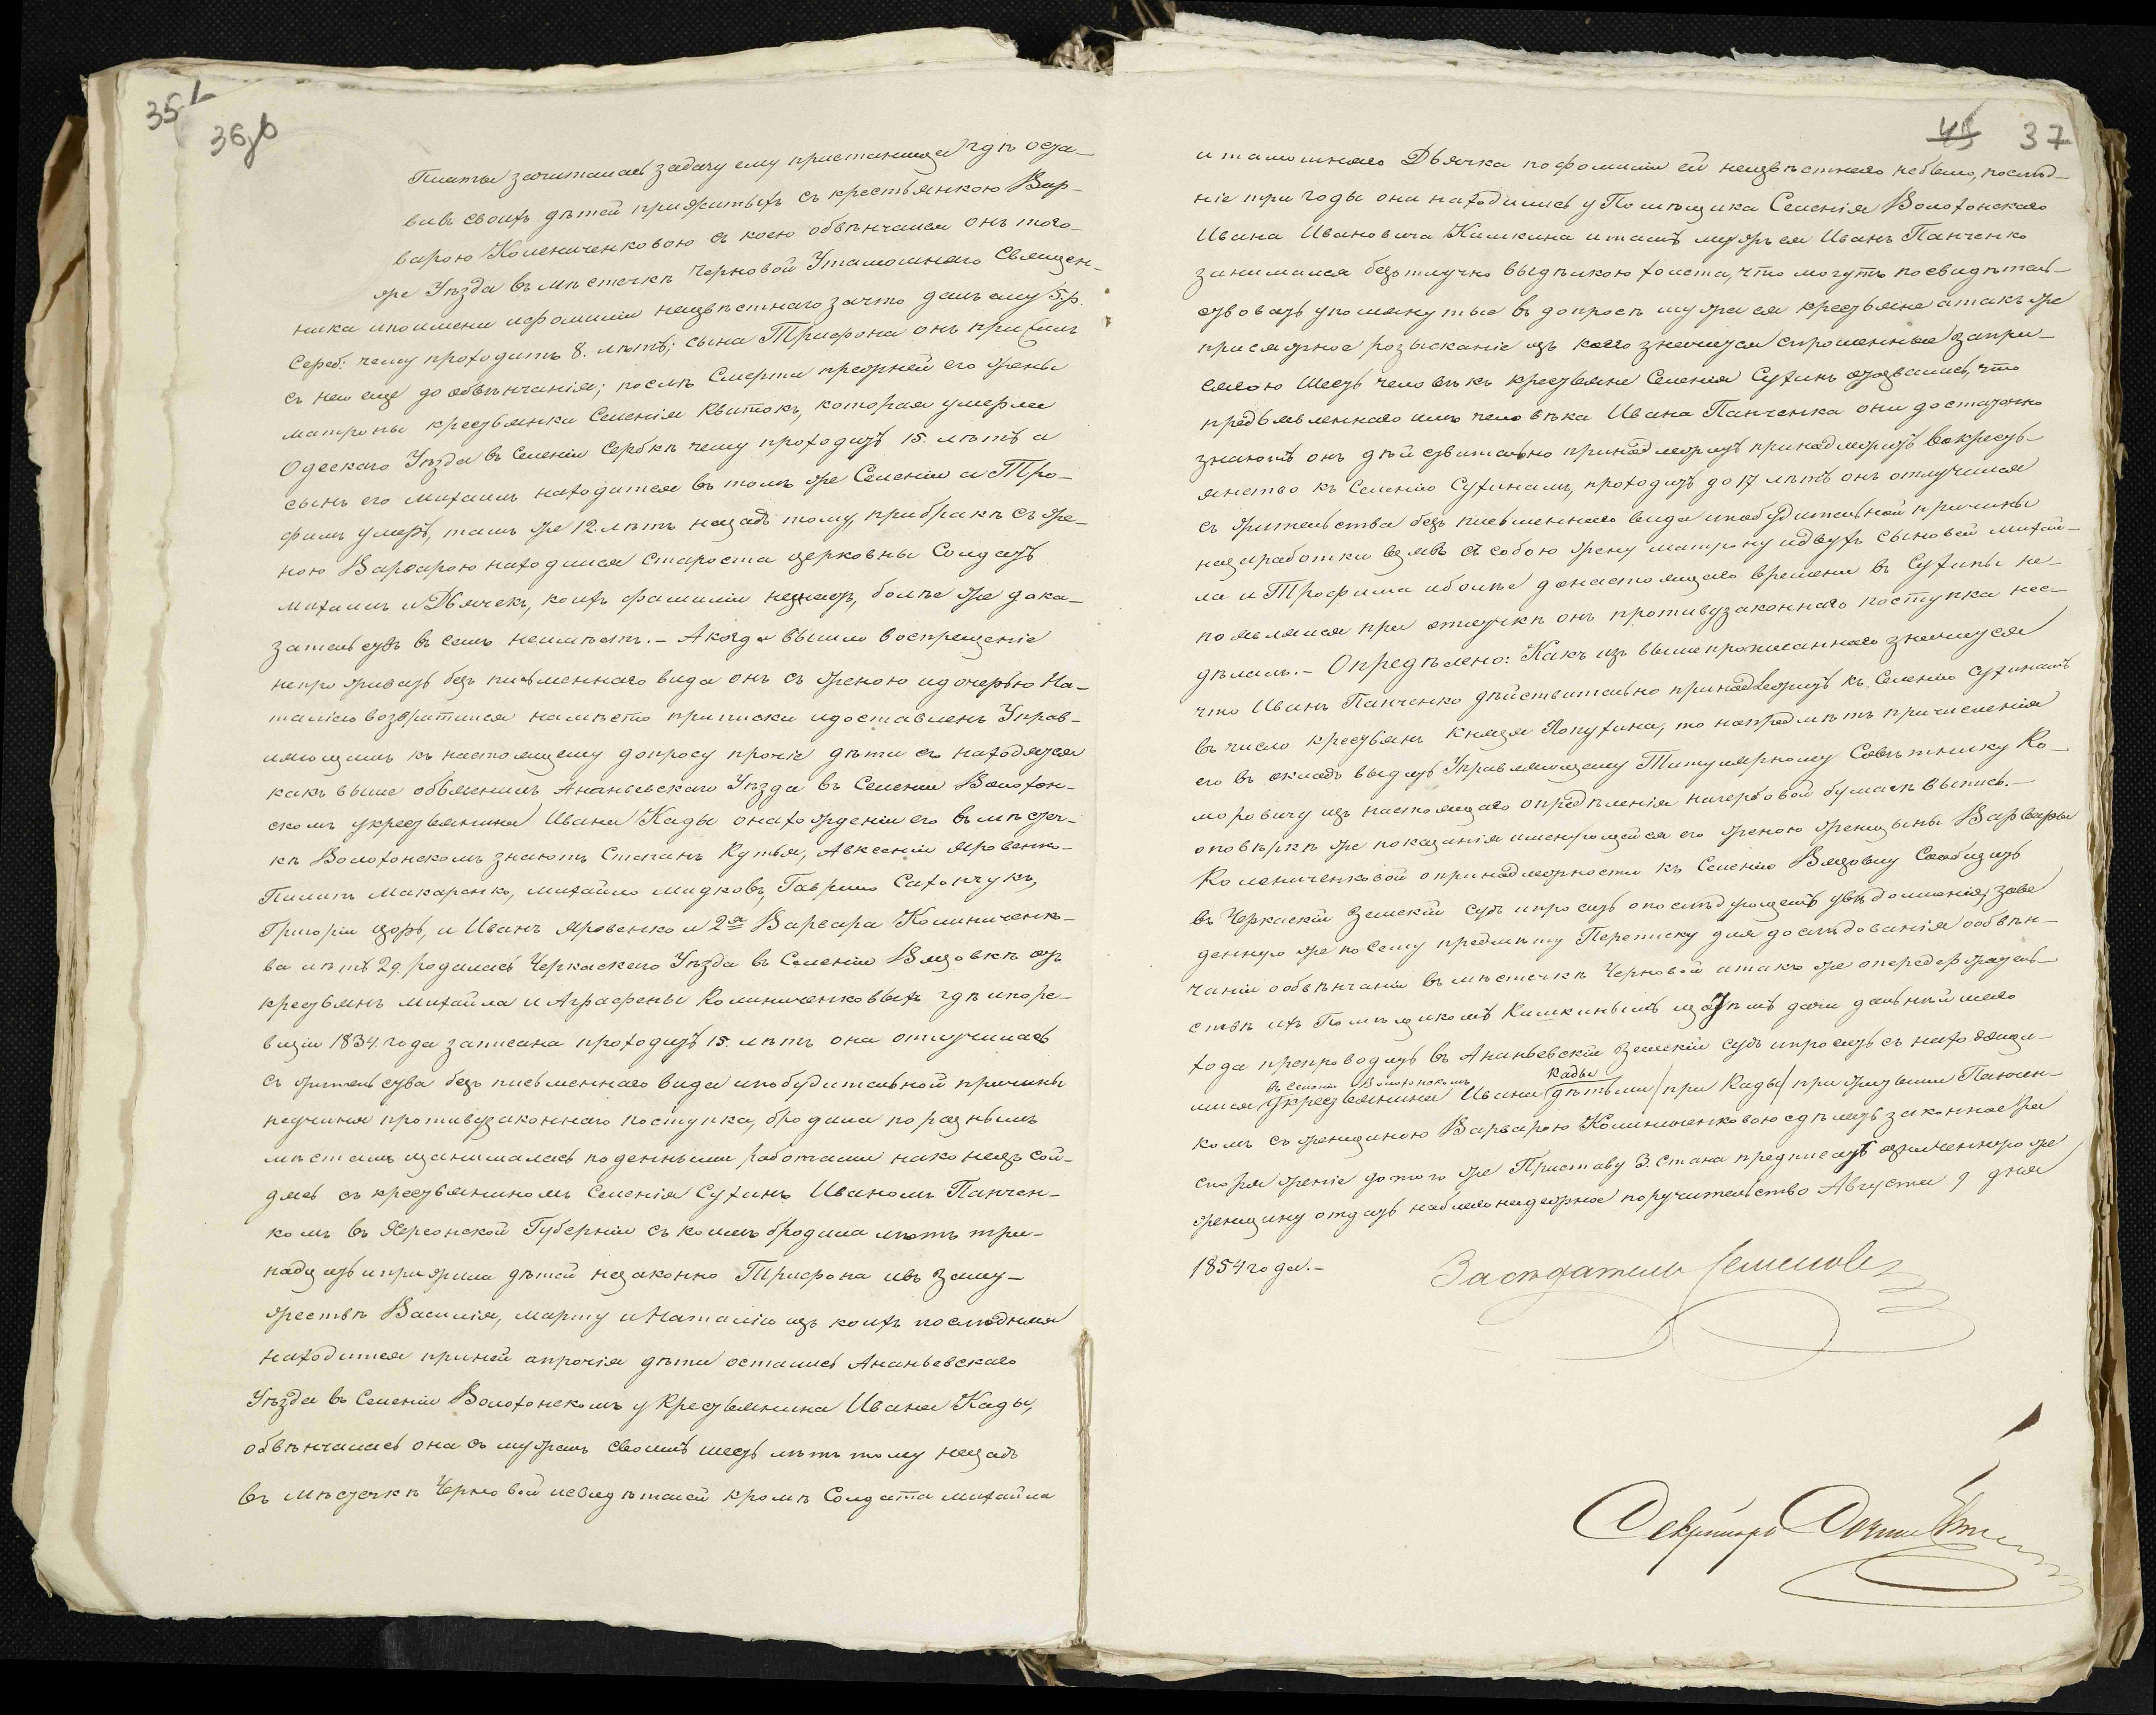 35
36об
Платы зачиталась задачу ему пристанища гдѣ оста-
вивъ своихъ дѣтей прижитыхъ съ крестьянкою Вар-
варою Коленниченковою съ коею обвѣнчался онъ того-
же Уѣзда въ мѣстечкѣ Черновой Утамошнаго Священ-
ника ипоимени ифамиліи неизвѣстнаго зачто далъ ему 5.р.
Сереб: чему проходитъ 8. лѣтъ; сына Трифона онъ прижилъ
съ нею еще до обвѣнчанія; послѣ Смерти прежней его жены
матроны крестьянки Селенія Квитокъ, которая умерла
Одескаго Уѣзда въ Селеніи Сербкѣ чему проходитъ 15. лѣтъ а
сынъ его михаилъ находится въ томъ же Селеніи а Тро-
фимъ умеръ, тамъ же 12. лѣтъ назадъ тому, прибракѣ съ же-
ною Варварою находился Староста церковны Солдатъ
михаилъ и Дьячекъ, коихъ фамиліи незнаетъ, болѣе же дока-
зательствъ въ семъ неимѣетъ. – А когда вышло воспрещеніе
непроживать безъ письменнаго вида онъ съ женою идочерью На-
таліею возвратился намѣсто приписки идоставленъ Управ-
ляющимъ къ настоящему допросу прочіе дѣти его находятся
какъ выше объяснилъ Ананьевскаго Уѣзда въ Селеніи Волохон-
скомъ укрестьянина Ивана Кады онахожденіи его въ мѣстеч-
кѣ Волохонскомъ знаютъ Степанъ Кутья, Авксеній Яровенко-
Пилипъ Макаренко, михайло мидковъ, Гаврило Сахончукъ,
Григорій царь, и Иванъ Яровенко и 2я Варвара Колинниченко-
ва лѣтъ 29 родилась Черкаскаго Уѣзда въ Селеніи Вязовкѣ отъ
крестьянъ михайла и Аграфены Колинниченковыхъ гдѣ ипоре-
визіи 1834. года записана проходитъ 15. лѣтъ она отлучилась
съ жительства безъ письменнаго вида ипобудительной причины
неучиня противузаконнаго поступка, бродила по разнымъ
мѣстамъ изанималась поденными работами наконецъ сой-
дясь съ крестьяниномъ Селенія Сухинъ Иваномъ Панчен-
комъ въ Херсонской Губерніи съ коимъ бродила лѣтъ три-
надцать иприжила дѣтей незаконно Трифона ивъ Заму-
жествѣ Василія, марту и Наталію изъ коихъ послѣдняя
находится приней апрочія дѣти остались Ананьевскаго
Уѣзда въ Селеніи Волохонскомъ укрестьянина Ивана Кады,
обвѣнчалась она съ мужемъ своимъ шесть лѣтъ тому назадъ
въ мѣстечкѣ Черновой исвидѣтелей кромѣ Солдата михайла
45 37
итамошняго Дьячка пофамиліи ей неизвѣстнаго небыло, послѣд-
ніе три годы они находились у Помѣщика Селенія Волохонскаго
Ивана Ивановича Кишкина итамъ мужъ ея Иванъ Панченко
занимался безотлучно выдѣлкою холста, что могутъ посвидѣтель-
ствовать упомянутые въ допросѣ мужа ея крестьяне атакъ же
присяжное розысканіе изъ коего значится спрошенные запри-
сягою Шесть человѣкъ крестьяне Селенія Сухинъ отозвались, что
предъявленнаго имъ человѣка Ивана Панченка они достаточно
знаютъ онъ дѣйствительно принадлежитъ принадлежитъ вокресть-
янство къ Селенію Сухинамъ, проходитъ до 17 лѣтъ онъ отлучился
съ жительства безъ письменнаго вида ипобудительной причины
назаработки взявъ съ собою жену матрону идвухъ сыновей михай-
ла и Трофима иболѣе донастоящаго времени въ Сухины не-
появлялся при отлучкѣ онъ противузаконнаго поступка нес-
дѣлалъ. – Опредѣлено: Какъ изъ вышепрописаннаго значится
что Иванъ Панченко дѣйствительно принадлежитъ къ Селенію Сухинамъ
въ число крестьянъ Князя Лопухина, то напредмѣтъ причисленія
его въ окладъ выдать Управляющему Титулярному Совѣтнику Ко-
моровичу изъ настоящаго опредѣленія нагербовой бумагѣ выпись. –
оповѣркѣ же показанія именующейся его женою женщины Варвары
Коленниченковой опринадлежности къ Селенію Вязовку Сообщить
въ Черкаскій Земскій Судъ ипросить опослѣдующемъ увѣдомленія, заве
денную же по Сему предмѣту Переписку для дослѣдованія ообвѣн-
чаніи ообвѣнчаніи въ мѣстечкѣ Черновой атакъ же опередержатель-
ствѣ ихъ Помѣщикомъ Кишкинымъ идѣтѣмъ дачи дальнѣйшаго
хода препроводить въ Ананьевскій Земскій Судъ ипросить съ находящи-
въ Селеніи Волохонскомъ Кады
мися укрестьянина Ивана дѣтьми /при Кады/ прижитыми Панчен-
комъ съ женщиною Варварою Колинниченковою сдѣлать законное ра
споряженіе дотого же Приставу 3. Стана предписать означенную же
женщину отдать наблагонадежное поручительство Августа 9 дня
1854 года. –
Засѣдатель Семеновъ
Секретарь